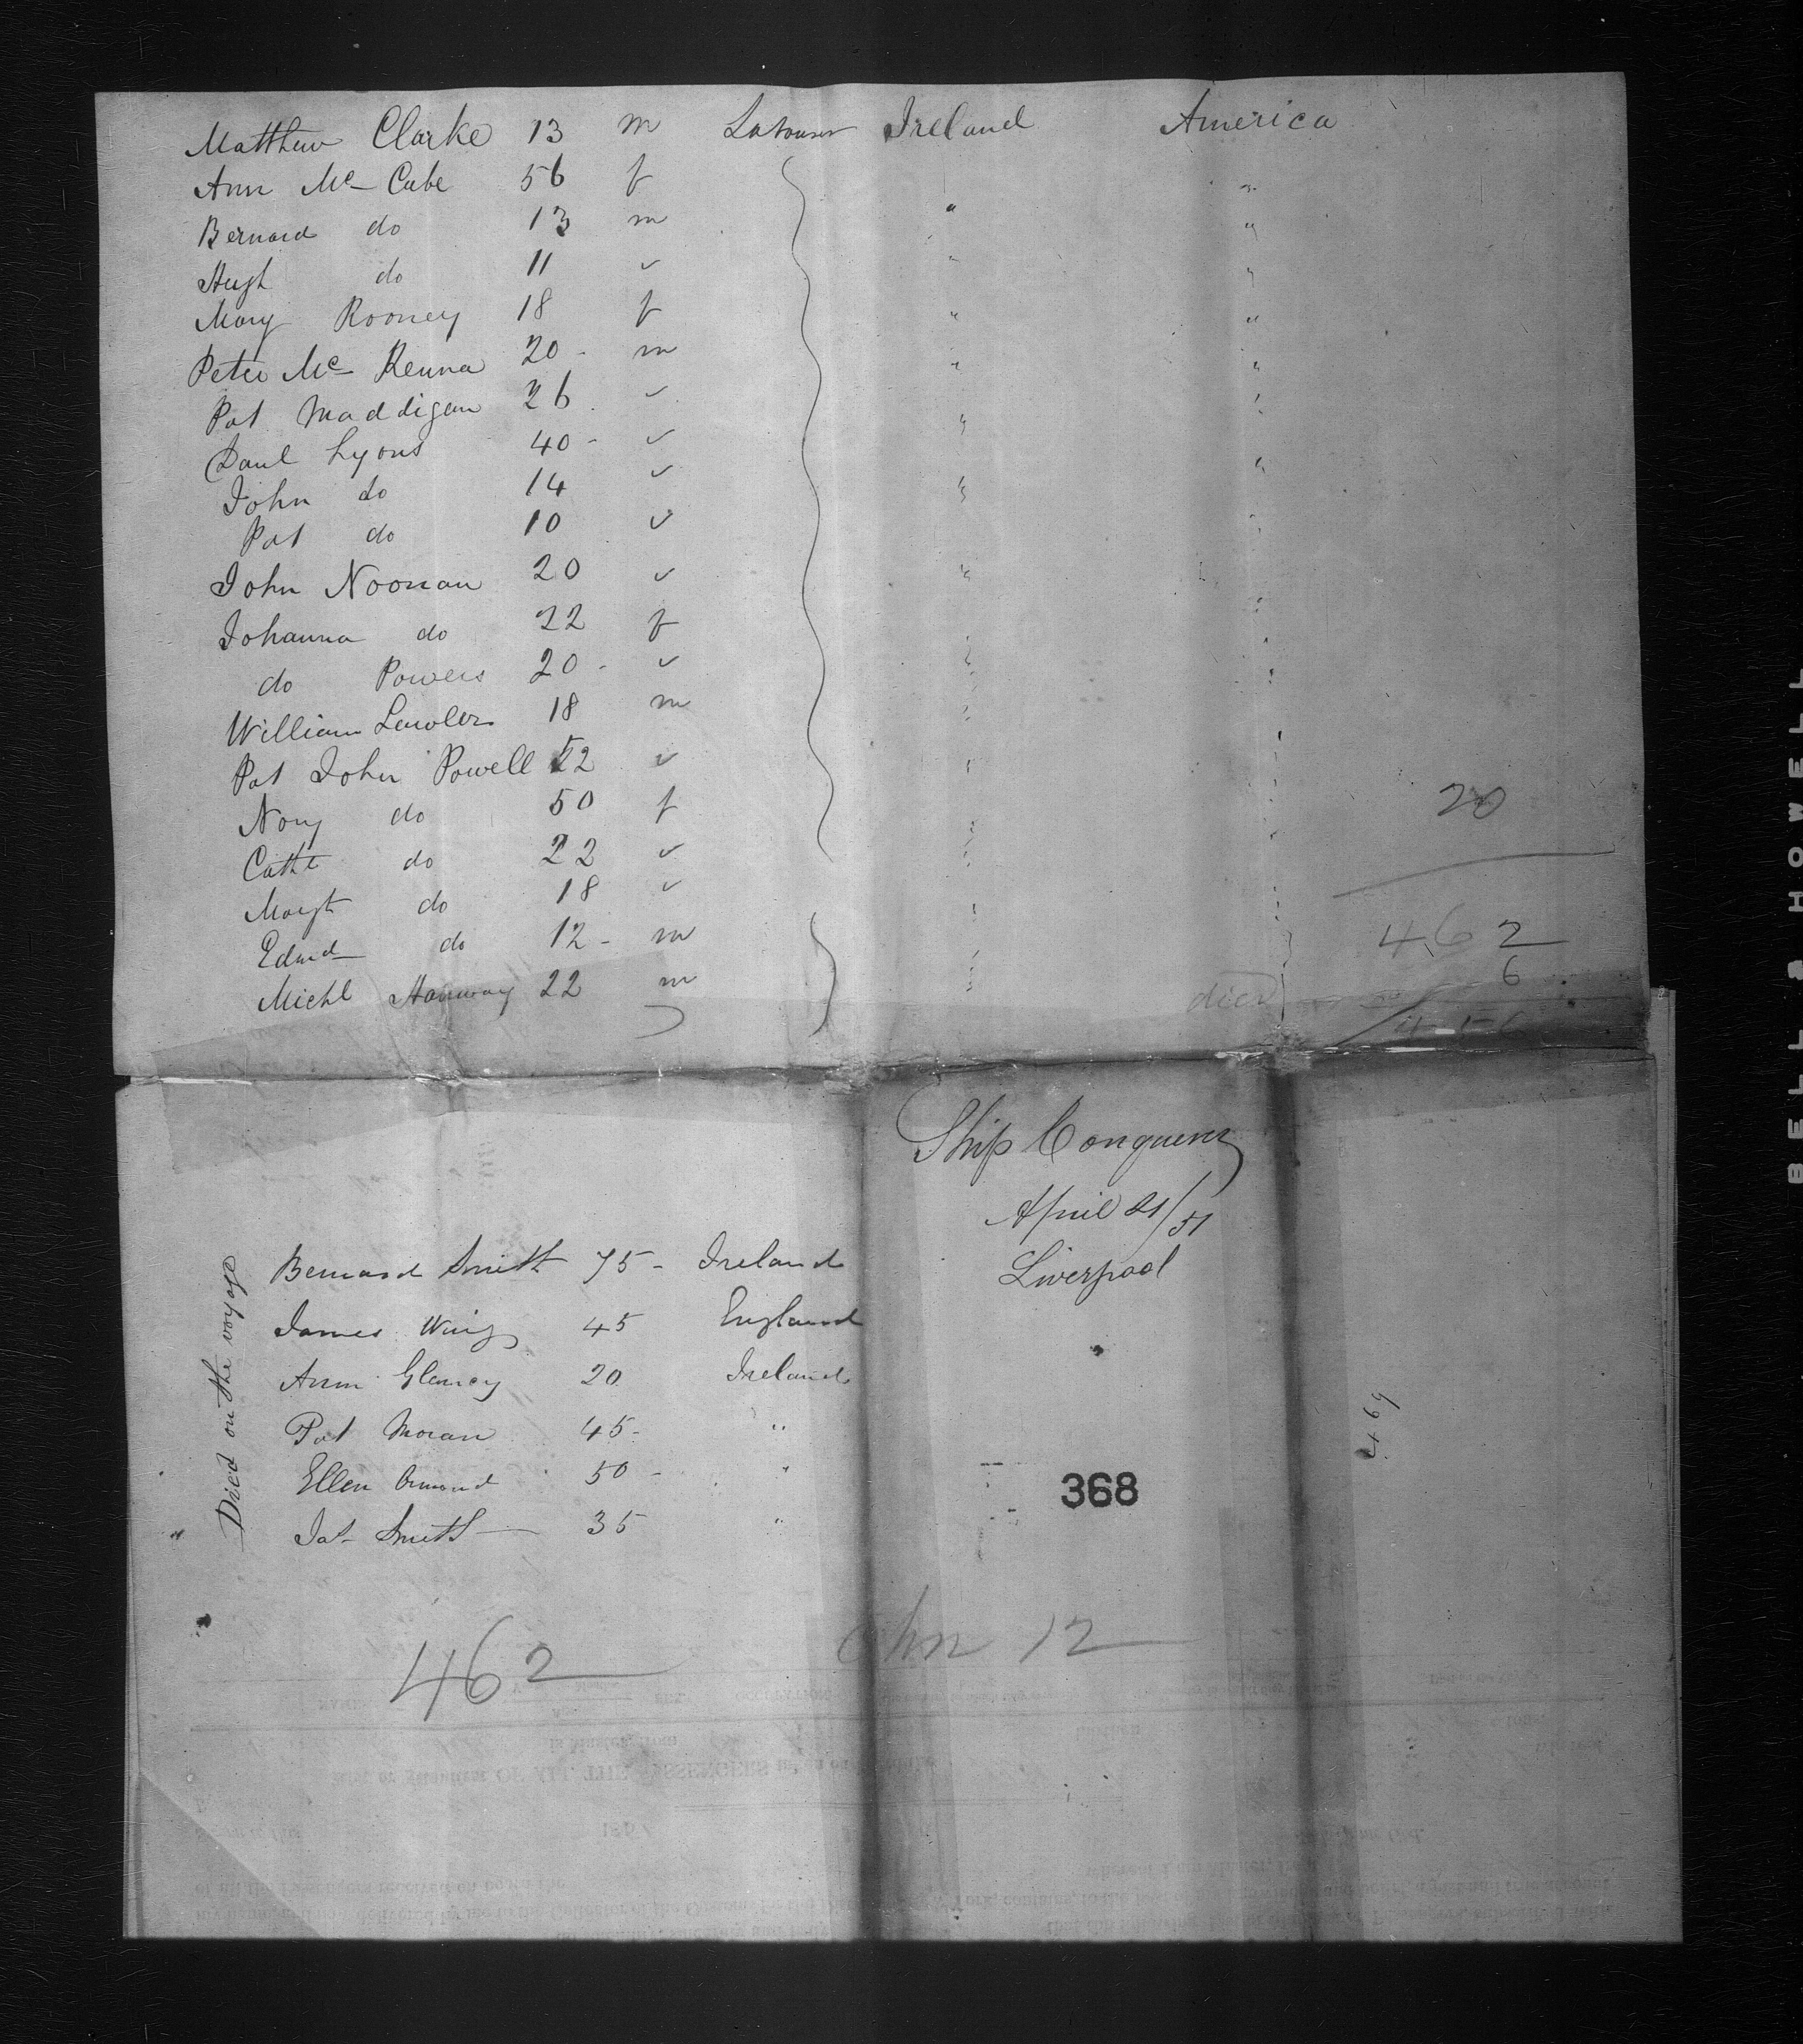 Matthew Clarke 13 m Labourer Ireland America
Ann Mc Cabe 56 f " "
Bernard do 13 m " "
Hugh do 11 " " "
Mary Rooney 18 f " "
Peter Mc Kenna 20 - m " "
Pat Maddigan 26 " " "
Paul Lyons 40 - " " "
John do 14 " " "
Pat do 10 " " "
John Noonan 20 " " "
Johanna do 22 f " "
do Powers 20 - " " "
William Lawler 18 m " "
Pat John Powell 52 " " "
Nony do 50 f " "
20
Cathe do 22 " " "
Margt do 18 " " "
Edwd do 12 - m " "
462
Michl Hanway 22 m " "
died 6
456
Ship Conqueror
April 21/51
Liverpool
Died on the voyage
Bernard Smith 75 - Ireland
James Wing 45 England
Ann Glancy 20 Ireland
Pat Moran 45 - "
Ellen Ormond 50 - "
Jas Smith 35 "
469
368
462
12
BELL & HOWELL